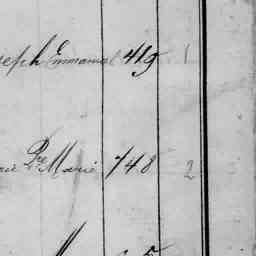 seph Emmanuel 419 1
cie Pre Marie 748 2